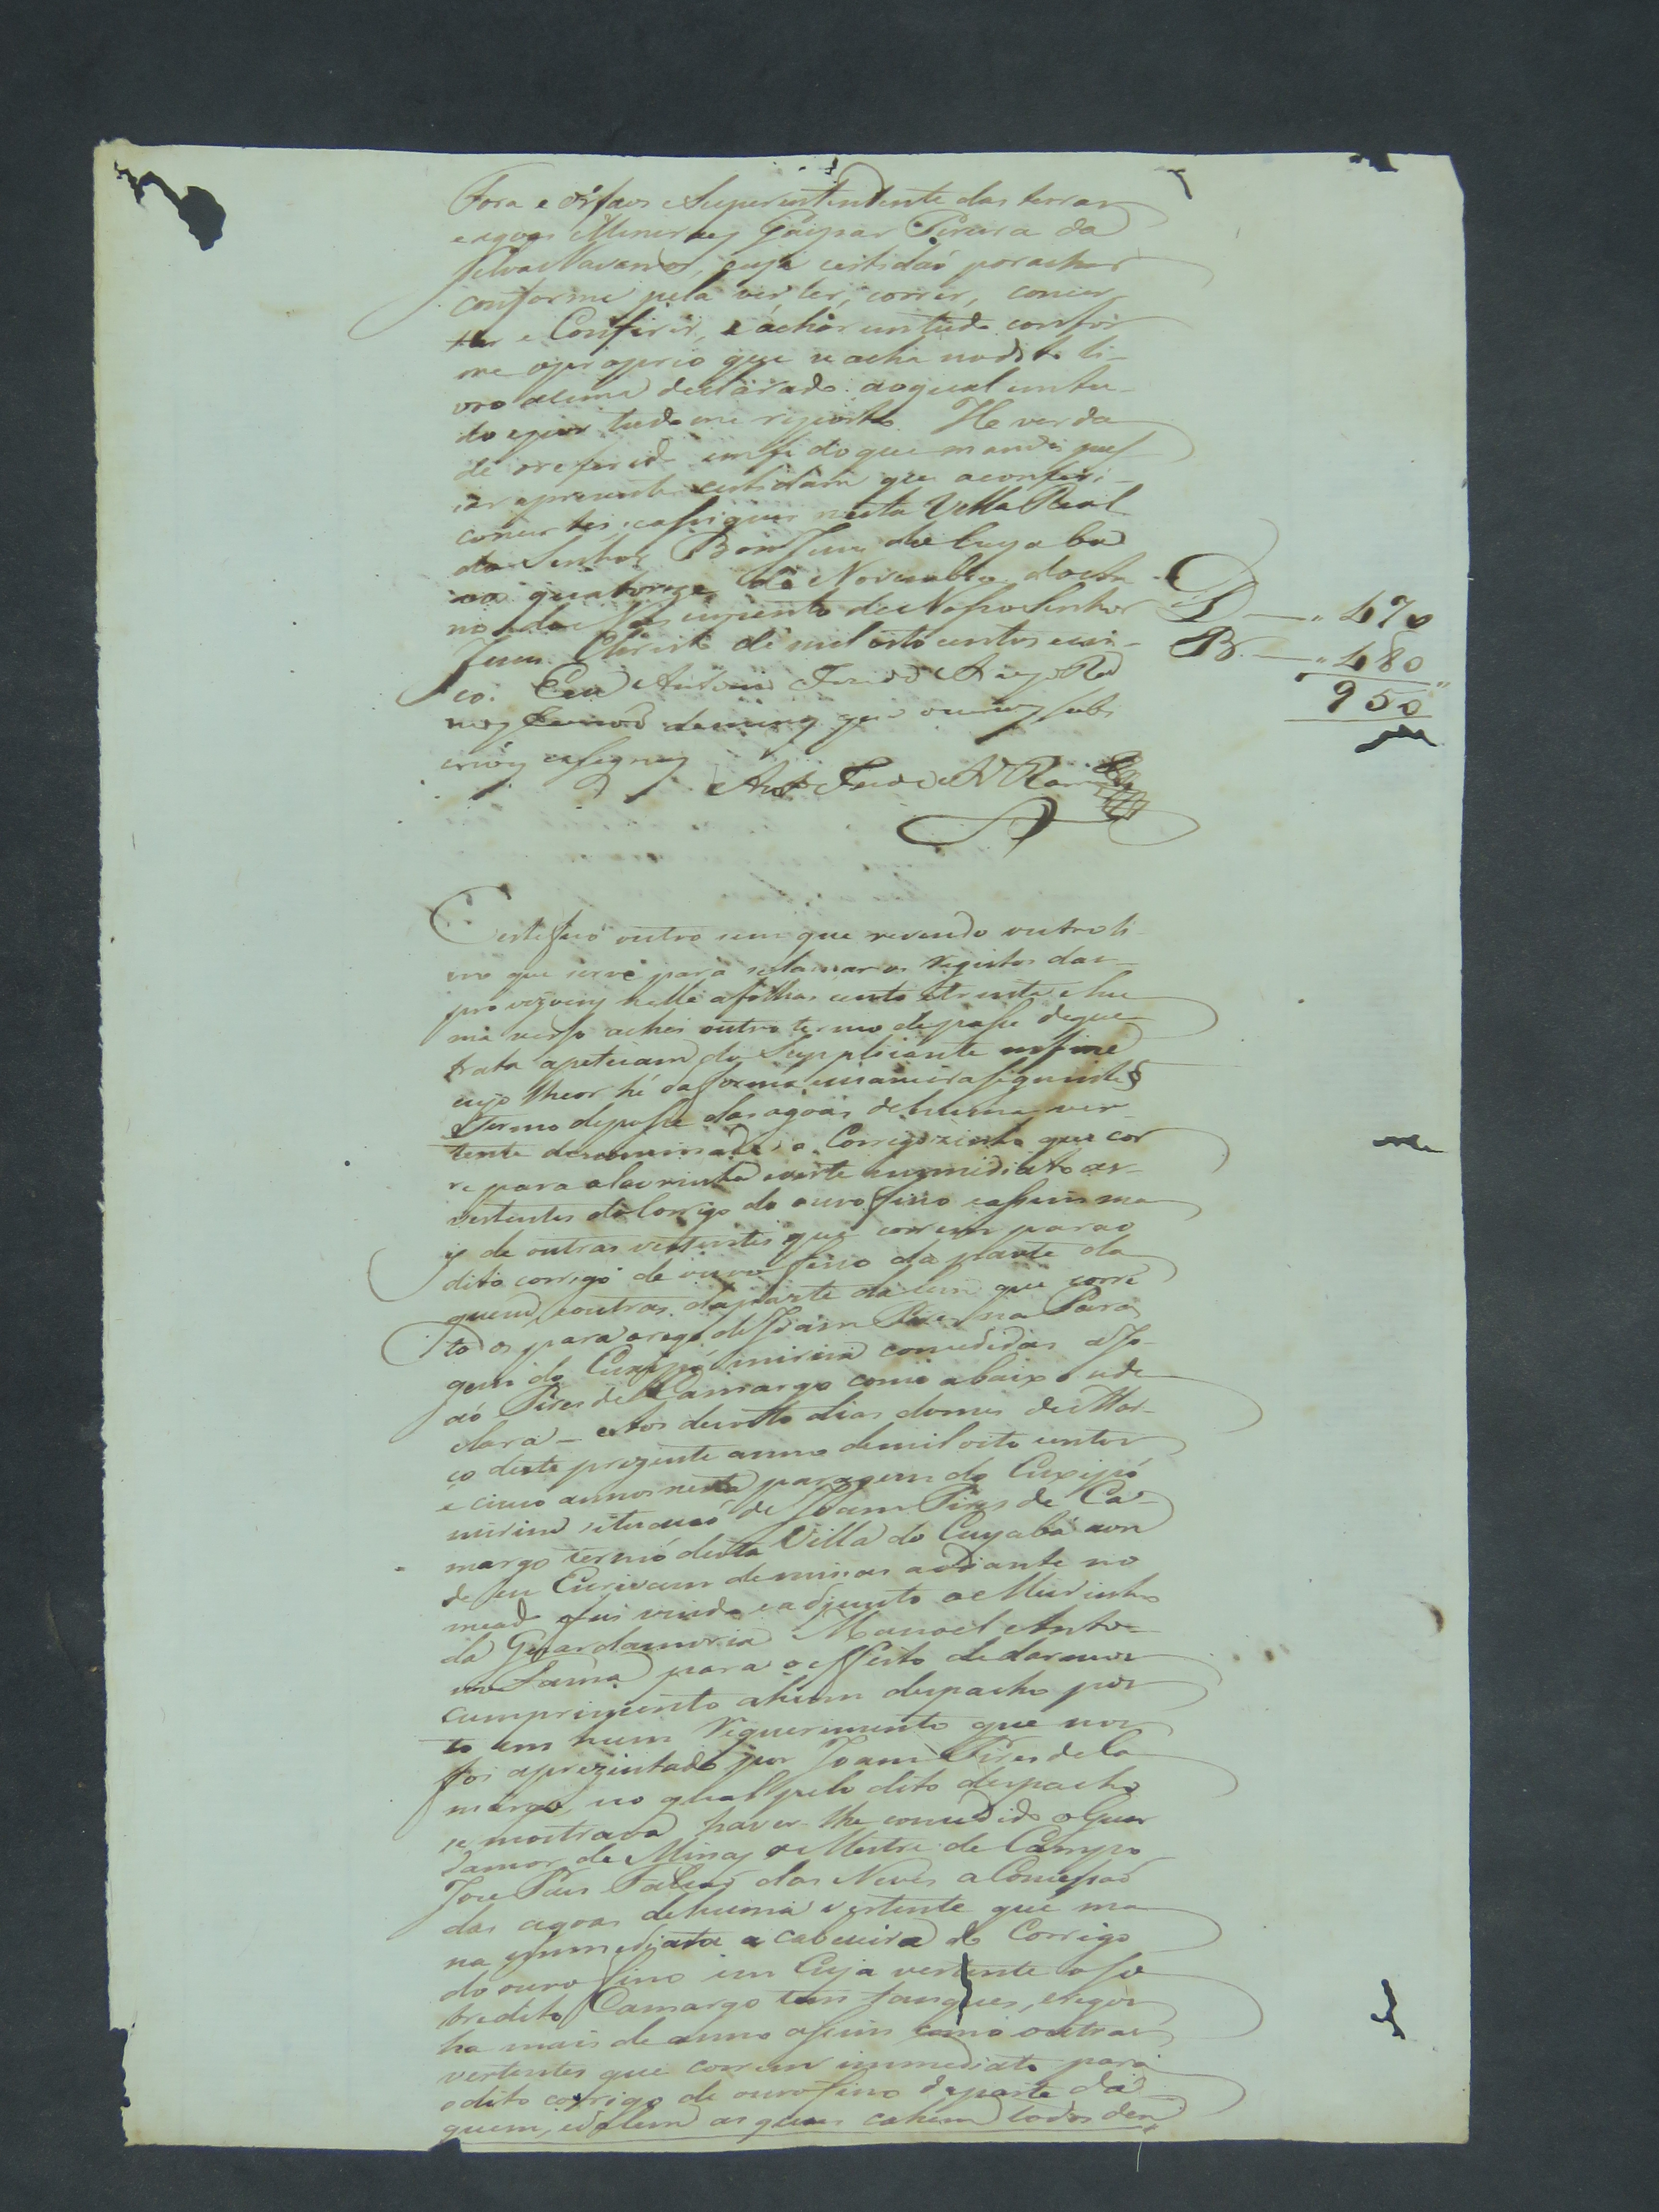 Fora e Orfaos e Superintendente das terras
e agoas Mineraes Gaspar Pereira da
Silva Navarro, cuja certidaó por achar
conforme pela ver ler, correr, concer
tar e Conferir, e áchar em tudo confor
me o proprio que se acha no dito li-
vro acima declarado aoqual em tu-
do e por tudo me reporto. He verda
de o referido em fé do que mandei pas
sar a prezente certidam que a conferi-
concertei, e assignei nesta Villa Real
do Senhor Bom Jesus do Cuyaba
aos quatorze de Novembro do an
no do Nascimento de Nosso Senhor
Jesus Christo de mil oito centos e cin-
co. Eu Antonio
Escrivaõ de minas que o escrevy subs
crevy e assigney
D — " 470
B. — " 480
950 "
Certefico outro sim que revendo outro li
vro que serve para se lansar os registos das
provizoens nelle a folhas cento e trinta e hu
ma verso achei outro termo de posse de que
trata a peticam do Supplicante
cujo theor hé da forma e maneira seguinte
Termo de posse das agoas de huma ver-
tente denominada o Corregozinho que cor
re para a lavrinha e verte immidiato as
vertentes do Corrigo do ouro fino e assim ma
is de outras vertentes que correm para o
dito corrigo de ouro fino da parte da
quem, e outras da parte dalem que corre
todos para o rego de Joam Pires na Para
gem do Cuxipó mirim concedidas a Jo-
aó Pires de Camargo como abaixo se de
clara — aos dezoito dias do mes de Mar-
ço deste prezente anno de mil oito centos
e cinco annos nesta paragem do Cuxipó
mirim situacaó de Joam Pires de Ca-
margo termo desta Villa do Cuyabá aon
de eu Escrivam de minas adiante no
meado fui vindo e adjunto o Meirinho
da Guardamoria Manoel Anto-
nio Lama para o effeito de darmos
cumprimento a hum despacho pos
to em hum requerimento que nos
foi aprezentado por Joam Pires de Ca
margo, no qual pelo dito despacho
se mostrava haver-lhe concedido o Guar
damor de Minas o Mestre de Campo
Joze Paes Falcaó das Neves a Concessaó
das agoas de huma vertente que ma
na immediata a cabeceira do Corrigo
do ouro fino em Cuja vertente o so
bredito Camargo tem tanques, e regos
ha mais de anno assim como outras
vertentes que correm immediato para
o dito corrigo de ouro fino da parte da
quem, e dalem as quaes cahem todos den